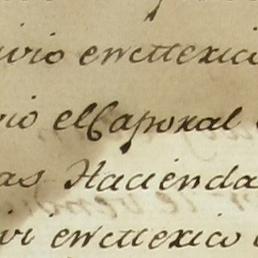 ivio en Mexico
vio el Caporal
as Hacienda
ivi en Mexico